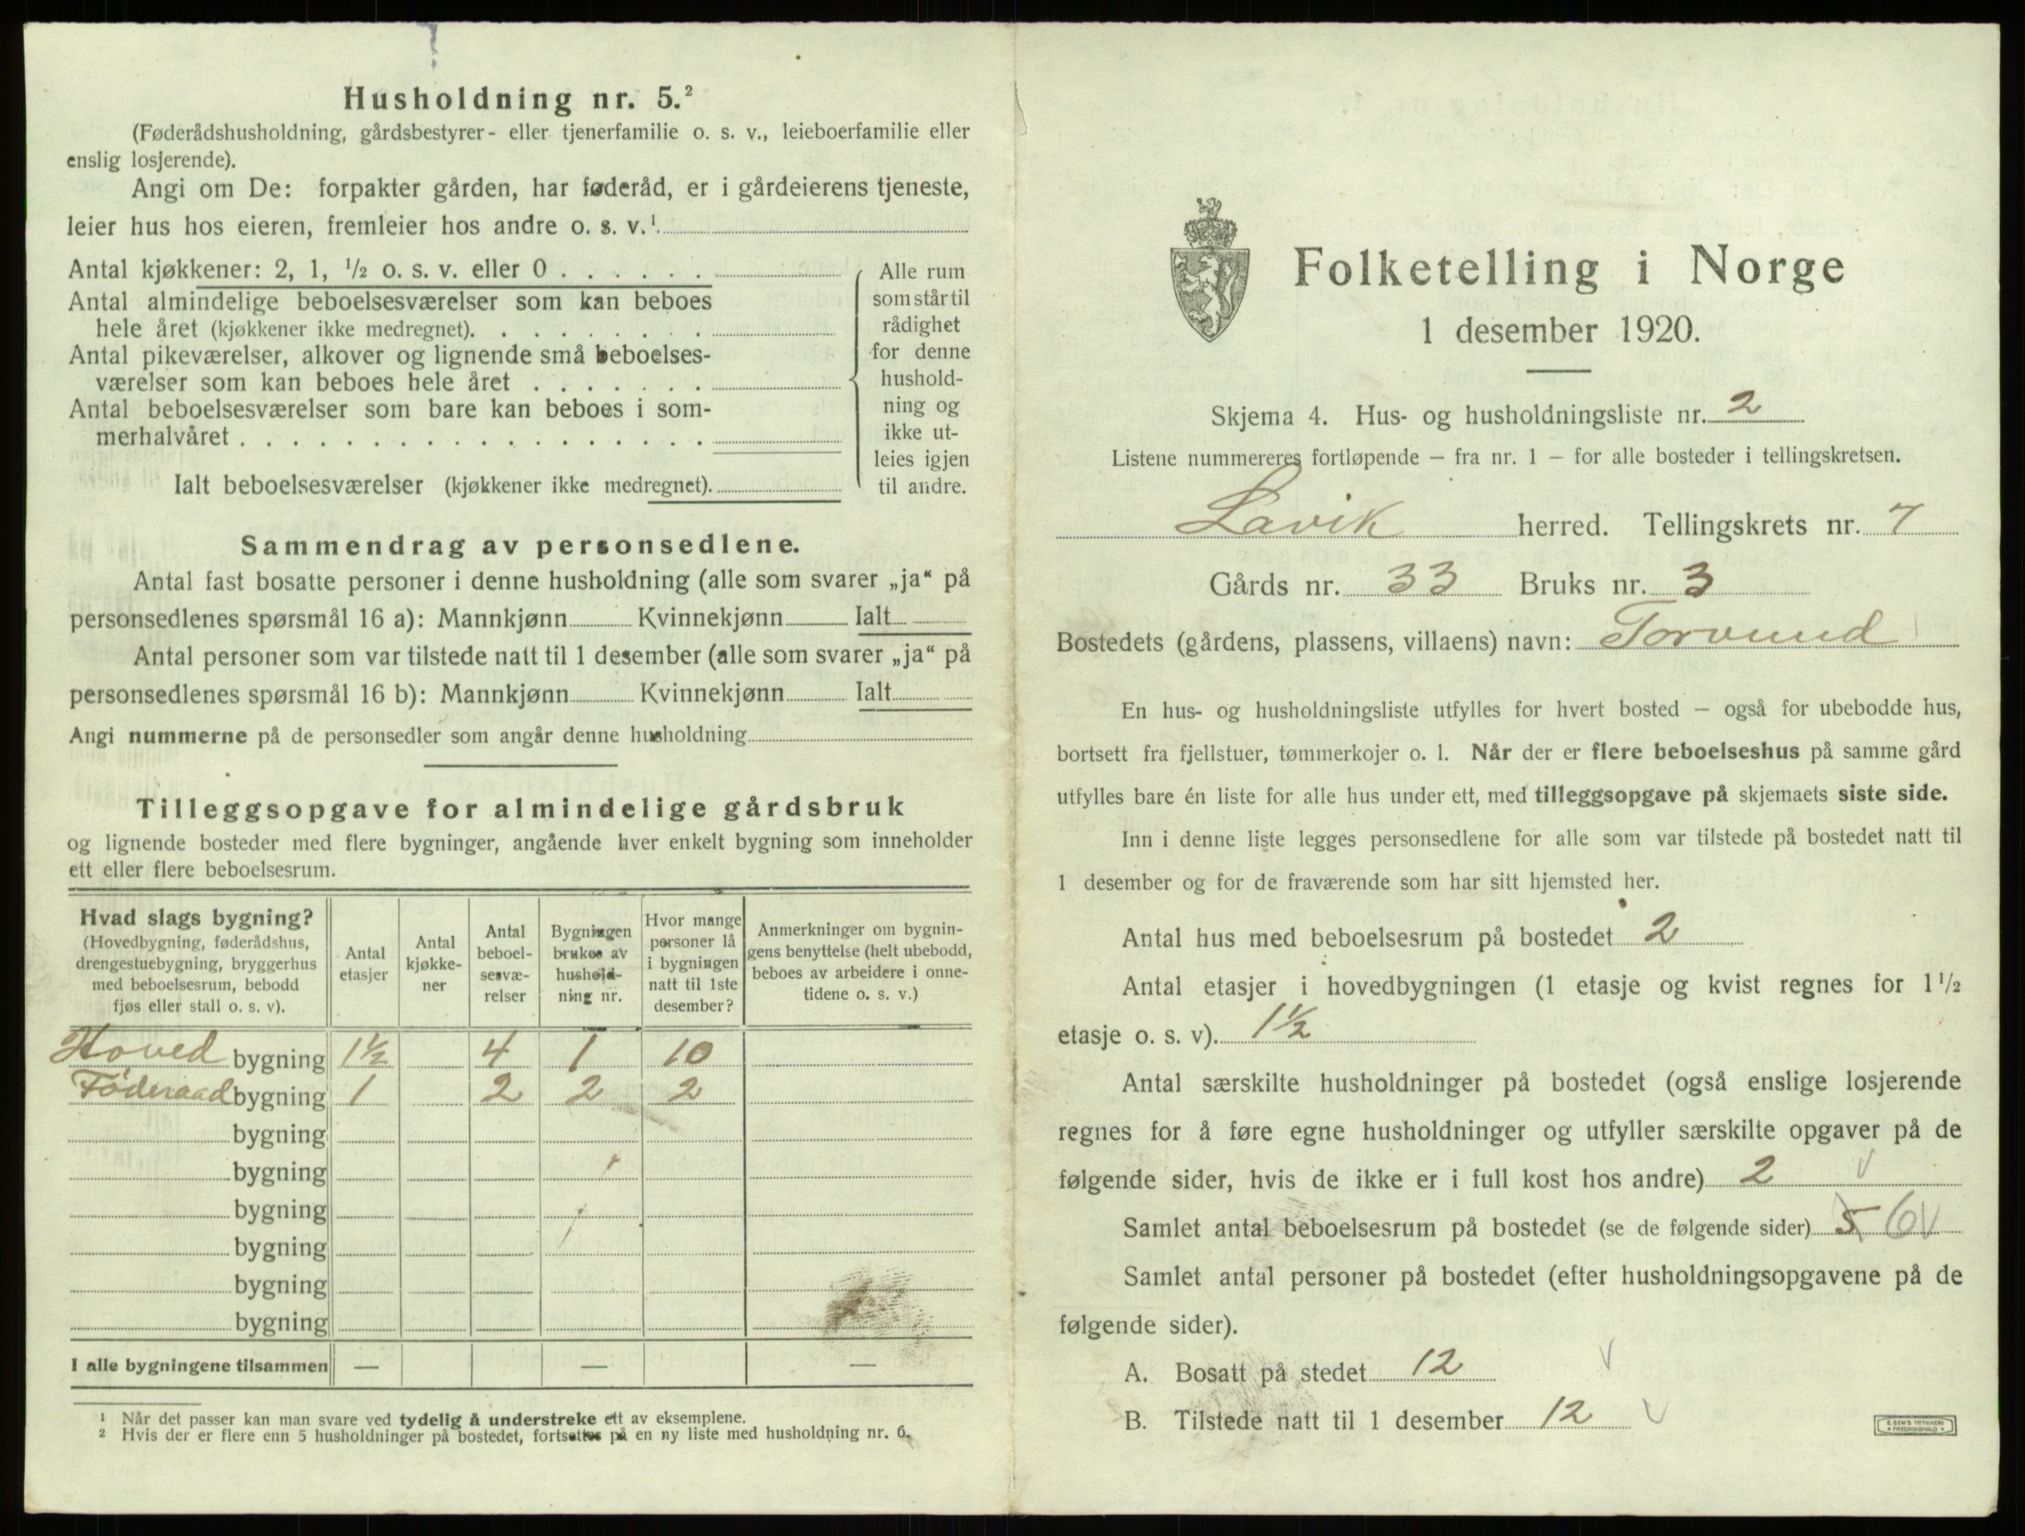 Husholdning nr. 5.²
(Føderådshusholdning, gårdsbestyrer- eller tjenerfamilie o. s. v., leieboerfamilie eller
enslig losjerende).
Angi om De: forpakter gården, har føderåd, er i gårdeierens tjeneste,
leier hus hos eieren, fremleier hos andre o. s. v.¹
Antal kjøkkener: 2, 1, ½ o. s. v. eller 0
Antal almindelige beboelsesværelser som kan beboes
hele året (kjøkkener ikke medregnet).
Antal pikeværelser, alkover og lignende små beboelses-
værelser som kan beboes hele året
Antal beboelsesværelser som bare kan beboes i som-
merhalvåret
Ialt beboelsesværelser (kjøkkener ikke medregnet).
Alle rum
som står til
rådighet
for denne
hushold-
ning og
ikke ut-
leies igjen
til andre.
Sammendrag av personsedlene.
Antal fast bosatte personer i denne husholdning (alle som svarer „ja“ på
personsedlenes spørsmål 16 a): Mannkjønn Kvinnekjønn Ialt
Antal personer som var tilstede natt til 1 desember (alle som svarer „ja“ på
personsedlenes spørsmål 16 b): Mannkjønn Kvinnekjønn Ialt
Angi nummerne på de personsedler som angår denne husholdning
Tilleggsopgave for almindelige gårdsbruk
og lignende bosteder med flere bygninger, angående hver enkelt bygning som inneholder
ett eller flere beboelsesrum.
Hvad slags bygning?
(Hovedbygning, føderådshus,
drengestuebygning, bryggerhus
med beboelsesrum, bebodd
fjøs eller stall o. s. v).
Antal
etasjer
Antal
kjøkke-
ner
Antal
beboel-
sesvæ-
relser
Bygningen
brukes av
hushold-
ning nr.
Hvor mange
personer lå
i bygningen
natt til 1ste
desember?
Anmerkninger om bygnin-
gens benyttelse (helt ubebodd,
beboes av arbeidere i onne-
tidene o. s. v.)
Hoved bygning 1½ 4 1 10
Föderaad bygning 1 2 2 2
bygning
bygning
bygning
bygning
bygning
bygning
I alle bygningene tilsammen — — —
¹ Når det passer kan man svare ved tydelig å understreke ett av eksemplene.
² Hvis der er flere enn 5 husholdninger på bostedet, fortsettes på en ny liste med husholdning nr. 6.
Folketelling i Norge
1 desember 1920.
Skjema 4. Hus- og husholdningsliste nr. 2
Listene nummereres fortløpende – fra nr. 1 – for alle bosteder i tellingskretsen.
Lavik herred. Tellingskrets nr. 7
Gårds nr. 33 Bruks nr. 3
Bostedets (gårdens, plassens, villaens) navn: Torvund
En hus- og husholdningsliste utfylles for hvert bosted – også for ubebodde hus,
bortsett fra fjellstuer, tømmerkojer o. l. Når der er flere beboelseshus på samme gård
utfylles bare én liste for alle hus under ett, med tilleggsopgave på skjemaets siste side.
Inn i denne liste legges personsedlene for alle som var tilstede på bostedet natt til
1 desember og for de fraværende som har sitt hjemsted her.
Antal hus med beboelsesrum på bostedet 2
Antal etasjer i hovedbygningen (1 etasje og kvist regnes for 1½
etasje o. s. v). 1½
Antal særskilte husholdninger på bostedet (også enslige losjerende
regnes for å føre egne husholdninger og utfyller særskilte opgaver på de
følgende sider, hvis de ikke er i full kost hos andre) 2 v
Samlet antal beboelsesrum på bostedet (se de følgende sider) 5 6 v
Samlet antal personer på bostedet (efter husholdningsopgavene på de
følgende sider).
A. Bosatt på stedet 12 v
B. Tilstede natt til 1 desember 12 v
E. SEM'S TRYKKERI
• FREDRIKSHALD •